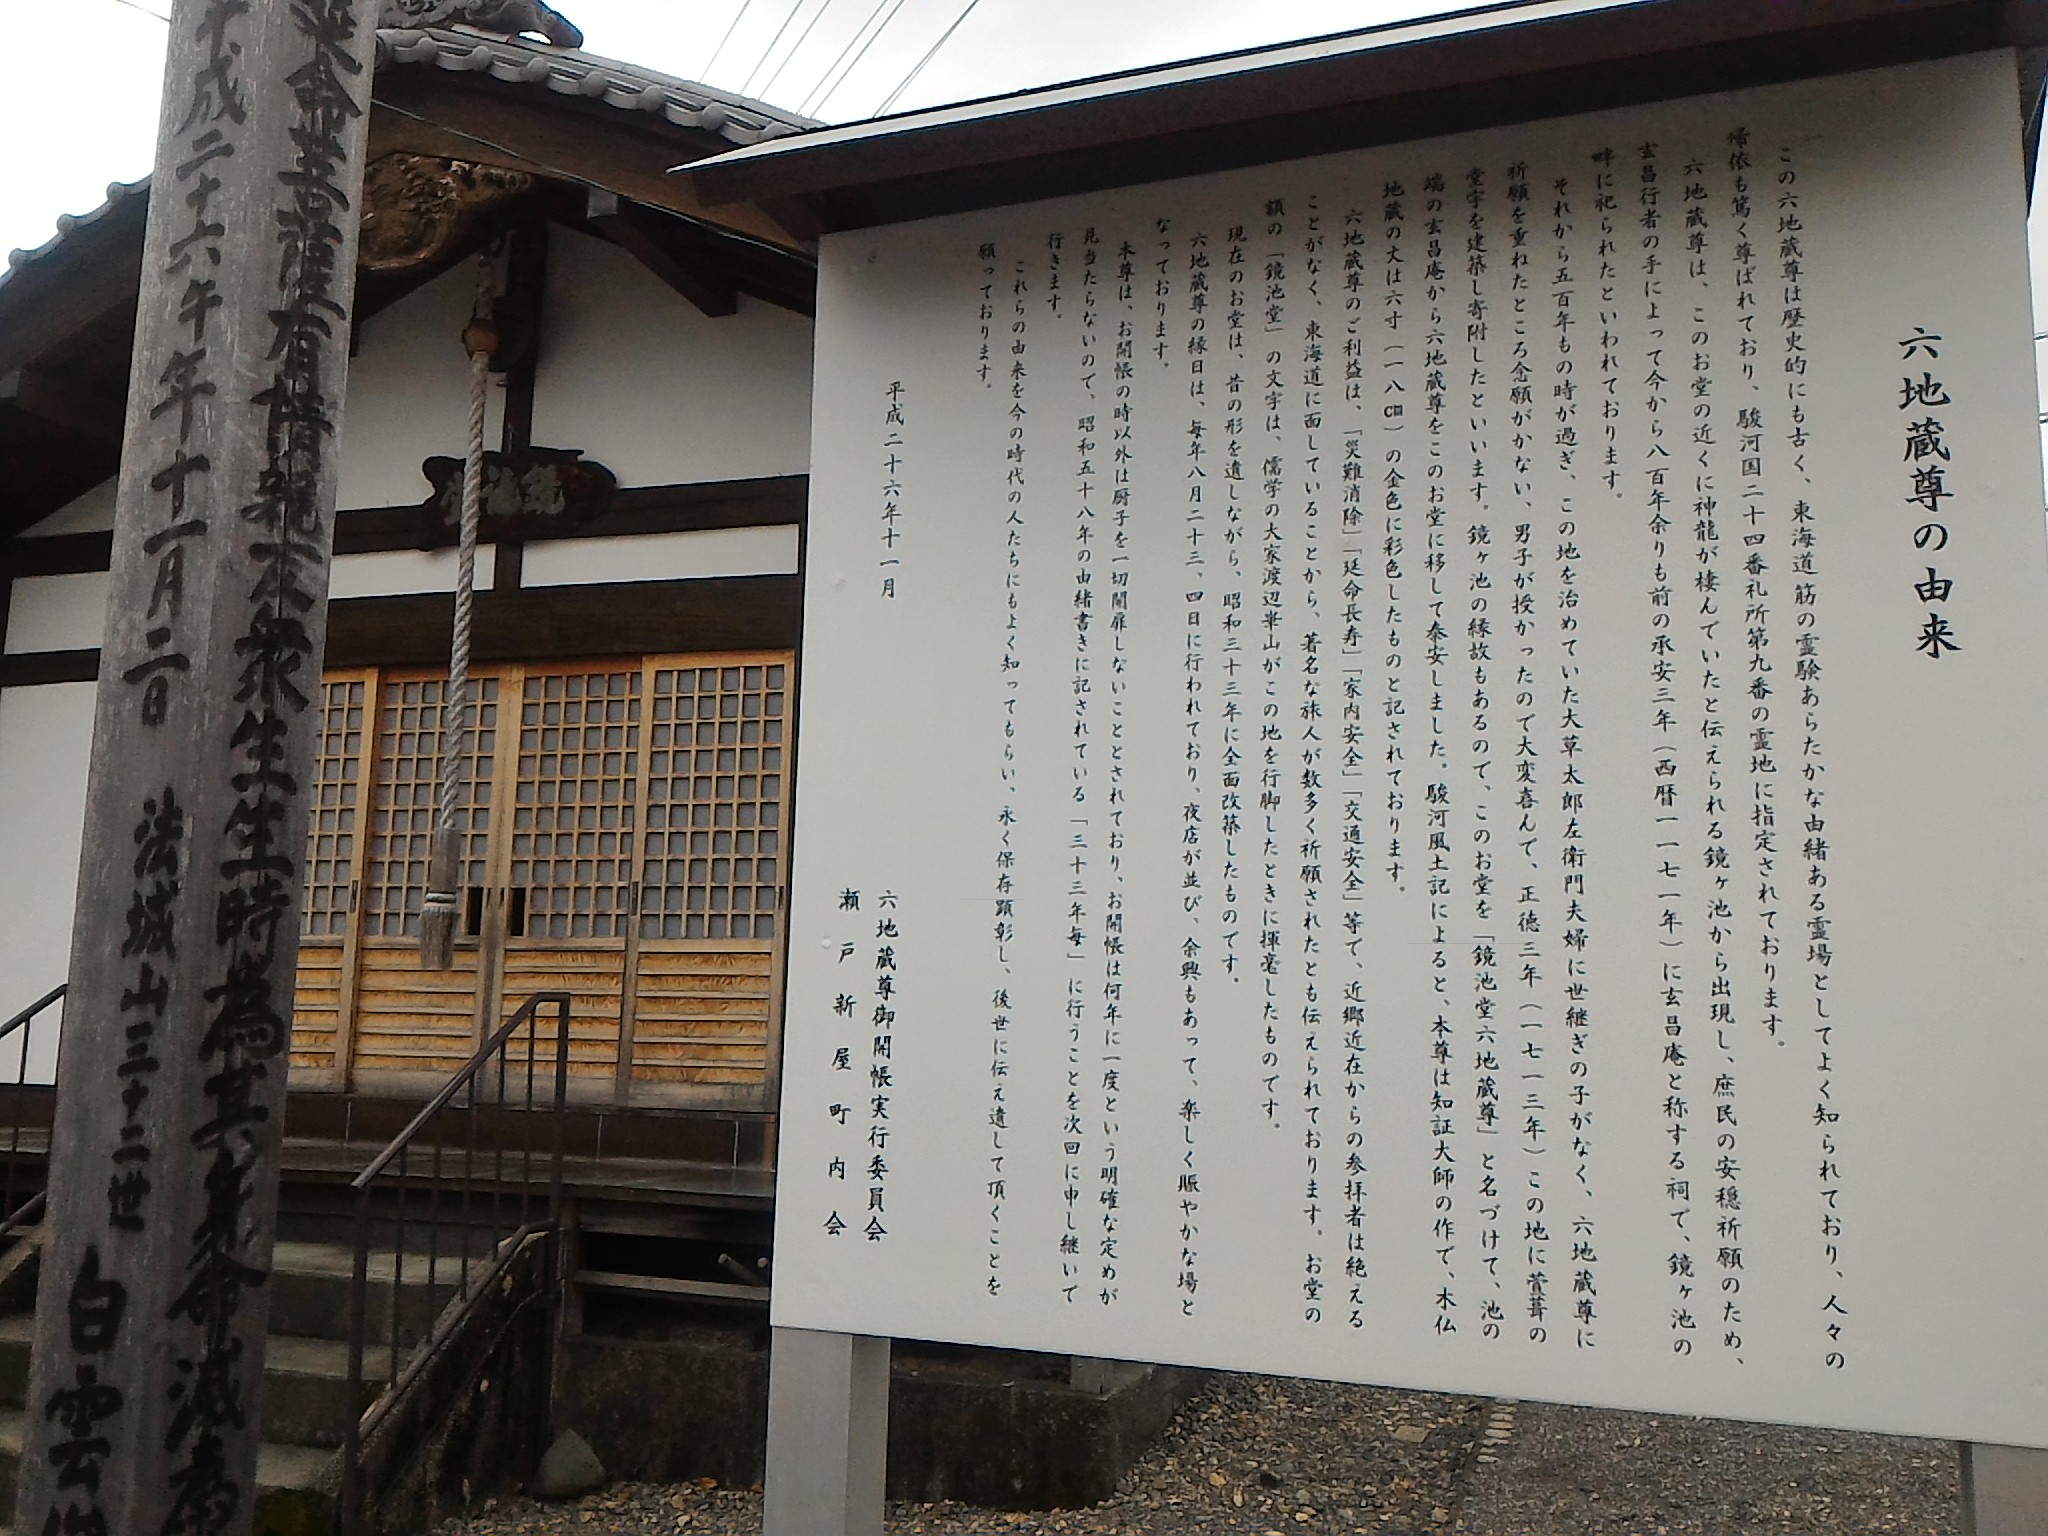 六地蔵尊の由来
この六地蔵尊は歴史的にも古く、東海道筋の霊験あらたかな由緒ある霊場としてよく知られており、人々の
帰依も篤く尊ばれており、駿河国二十四番札所第九番の霊地に指定されております。
六地蔵尊は、このお堂の近くに神龍が棲んでいたと伝えられる鏡ヶ池から出現し、庶民の安穏祈願のため、
玄昌行者の手によって今から八百年余りも前の承安三年（西暦一一七一年）に玄昌庵と称する祠で、鏡ヶ池の
畔に祀られたといわれております。
それから五百年もの時が過ぎ、この地を治めていた大草太郎左衛門夫婦に世継ぎの子がなく、六地蔵尊に
祈願を重ねたところ念願がかない、男子が授かったので大変喜んで、正徳三年（一七一三年）この地に萱葺の
堂宇を建築し寄附したといいます。鏡ヶ池の縁故もあるので、このお堂を「鏡池堂六地蔵尊」と名づけて、池の
端の玄昌庵から六地蔵尊をこのお堂に移して泰安しました。駿河風土記によると、本尊は知証大師の作で、木仏
地蔵の丈は六寸（一八㎝）の金色に彩色したものと記されております。
六地蔵尊のご利益は、「災難消除」「延命長寿」「家内安全」「交通安全」等で、近郷近在からの参拝者は絶える
ことがなく、東海道に面していることから、著名な旅人が数多く祈願されたとも伝えられております。お堂の
額の「鏡池堂」の文字は、儒学の大家渡辺崋山がこの地を行脚したときに揮毫したものです。
現在のお堂は、昔の形を遺しながら、昭和三十三年に全面改築したものです。
六地蔵尊の縁日は、毎年八月二十三、四日に行われており、夜店が並び、余興もあって、楽しく賑やかな場と
なっております。
本尊は、お開帳の時以外は厨子を一切開扉しないこととされており、お開帳は何年に一度という明確な定めが
見当たらないので、昭和五十八年の由緒書きに記されている「三十三年毎」に行うことを次回に申し継いで
行きます。
これらの由来を今の時代の人たちにもよく知ってもらい、永く保存顕彰し、後世に伝え遺して頂くことを
願っております。
平成二十六年十一月
六地蔵尊御開帳実行委員会
瀬戸新屋町内会
鏡池堂
延命菩薩有情親本衆生生時為其身命滅為
平成二十六午年十一月二日　法城山三十二世　白雲